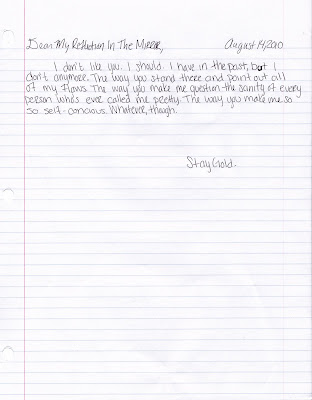 Dear My Reflection In The Mirror, August 14, 2010
I don't like you. I should. I have in the past, but I
don't anymore. The way you stand there and point out all
of my flaws. The way you make me question the sanity of every
person who's ever called me pretty. The way you make me so
so self-concious. Whatever, though.
Stay Gold.